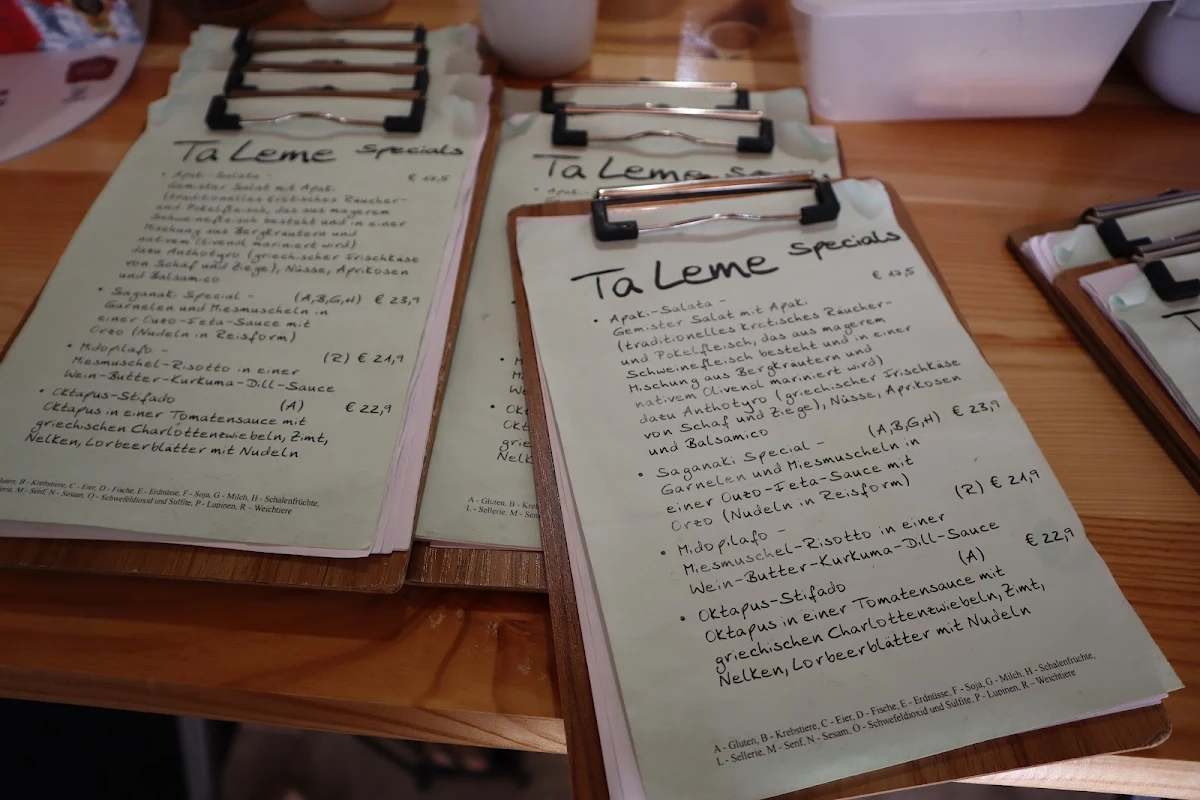 Ta Leme Specials
• Apaki-Salata - €
Gemister Salat mit Apaki
(traditionelles kretisches Räucher-
und Pökelfleisch, das aus magerem
Schweinefleisch besteht und in einer
Mischung aus Bergkräutern und
nativem Olivenöl mariniert wird)
dazu Anthotyro (griechischer Frischkäse
von Schaf und Ziege), Nüsse, Aprikosen
und Balsamico
• Saganaki Special - (A,B,G,H) € 23,9
Garnelen und Miesmuscheln in
einer Ouzo-Feta-Sauce mit
Orzo (Nudeln in Reisform)
• Midopilafo - (R) € 21,9
Miesmuschel-Risotto in einer
Wein-Butter-Kurkuma-Dill-Sauce
• Oktapus-Stifado (A) € 22,9
Oktapus in einer Tomatensauce mit
griechischen Charlottenzwiebeln, Zimt,
Nelken, Lorbeerblätter mit Nudeln
B - Krebstiere, C - Eier, D - Fische, E - Erdnüsse, F - Soja, G - Milch, H - Schalenfrüchte,
M - Senf, N - Sesam, O - Schwefeldioxid und Sulfite, P - Lupinen, R - Weichtiere
Ta Leme
A - Gluten, B -
L - Sellerie, M -
Ta Leme Specials
€ 13,5
• Apaki-Salata -
Gemister Salat mit Apaki
(traditionelles kretisches Räucher-
und Pökelfleisch, das aus magerem
Schweinefleisch besteht und in einer
Mischung aus Bergkräutern und
nativem Olivenöl mariniert wird)
dazu Anthotyro (griechischer Frischkäse
von Schaf und Ziege), Nüsse, Aprikosen
und Balsamico
• Saganaki Special - (A,B,G,H) € 23,9
Garnelen und Miesmuscheln in
einer Ouzo-Feta-Sauce mit
Orzo (Nudeln in Reisform)
• Midopilafo - (R) € 21,9
Miesmuschel-Risotto in einer
Wein-Butter-Kurkuma-Dill-Sauce
• Oktapus-Stifado (A) € 22,9
Oktapus in einer Tomatensauce mit
griechischen Charlottenzwiebeln, Zimt,
Nelken, Lorbeerblätter mit Nudeln
A - Gluten, B - Krebstiere, C - Eier, D - Fische, E - Erdnüsse, F - Soja, G - Milch, H - Schalenfrüchte,
L - Sellerie, M - Senf, N - Sesam, O - Schwefeldioxid und Sulfite, P - Lupinen, R - Weichtiere